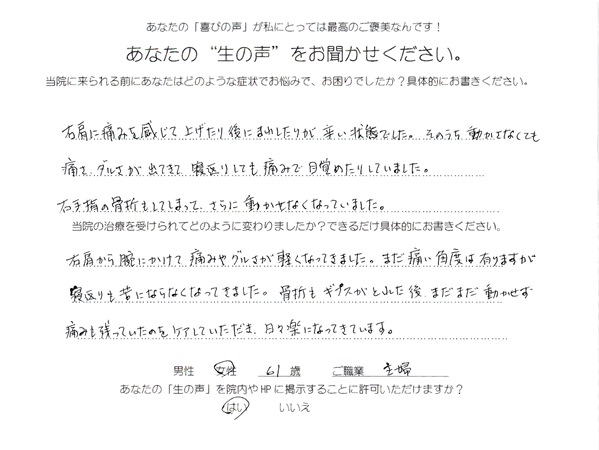 あなたの「喜びの声」が私にとっては最高のご褒美なんです！
あなたの “生の声” をお聞かせください。
当院に来られる前にあなたはどのような症状でお悩みで、お困りでしたか？具体的にお書きください。
右肩に痛みを感じて上げたり後にまわしたりが辛い状態でした。そのうち動かさなくても
痛さ、ダルさが出てきて寝返りしても痛みで目覚めたりしていました。
右手指の骨折もしてしまって、さらに動かせなくなっていました。
当院の治療を受けられてどのように変わりましたか？できるだけ具体的にお書きください。
右肩から腕にかけて痛みやダルさが軽くなってきました。まだ痛い角度は有りますが
寝返りも苦にならなくなってきました。骨折もギプスがとれた後、まだまだ動かせず
痛みも残っていたのをケアしていただき、日々楽になってきています。
男性 女性 61 歳 ご職業 主婦
あなたの「生の声」を院内やHPに掲示することに許可いただけますか？
はい いいえ